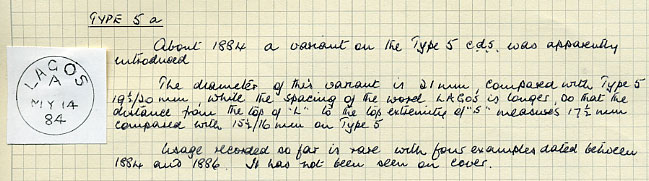 TYPE 5 a
About 1884 a variant on the Type 5 c.d.s. was apparently
introduced
LAGOS
A
MY 14
84
The diameter of this variant is 21 mm, compared with Type 5
19½/20 mm, while the spacing of the word LAGOS is longer, so that the
distance from the top of "L" to the top extremity of "S" measures 17½ mm
compared with 15½/16 mm on Type 5
Usage recorded so far is rare with four examples dated between
1884 and 1886. It has not been seen on cover.